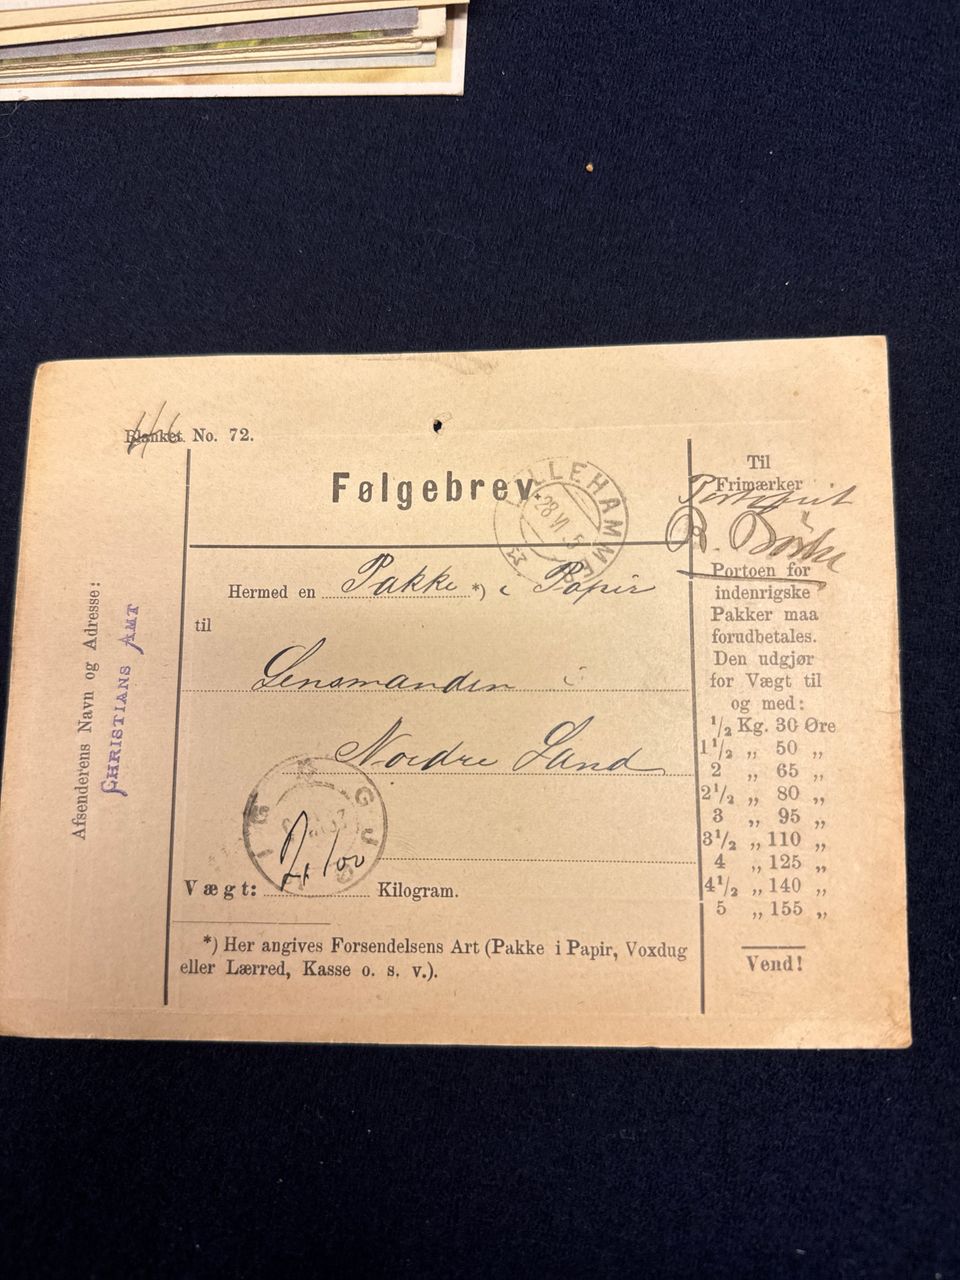 Blanket No. 72.
Følgebrev.
LILLEHAMMER
28 VI 5
Til
Frimærker
Portofrit
Hermed en Pakke *) i Papir
til
Lensmanden i
Nordre Land
Vægt: Kilogram.
*) Her angives Forsendelsens Art (Pakke i Papir, Voxdug
eller Lærred, Kasse o. s. v.).
Afsenderens Navn og Adresse:
CHRISTIANS AMT
Portoen for
indenrigske
Pakker maa
forudbetales.
Den udgjør
for Vægt til
og med:
1/2 Kg. 30 Øre
1 1/2 „ 50 „
2 „ 65 „
2 1/2 „ 80 „
3 „ 95 „
3 1/2 „ 110 „
4 „ 125 „
4 1/2 „ 140 „
5 „ 155 „
Vend!